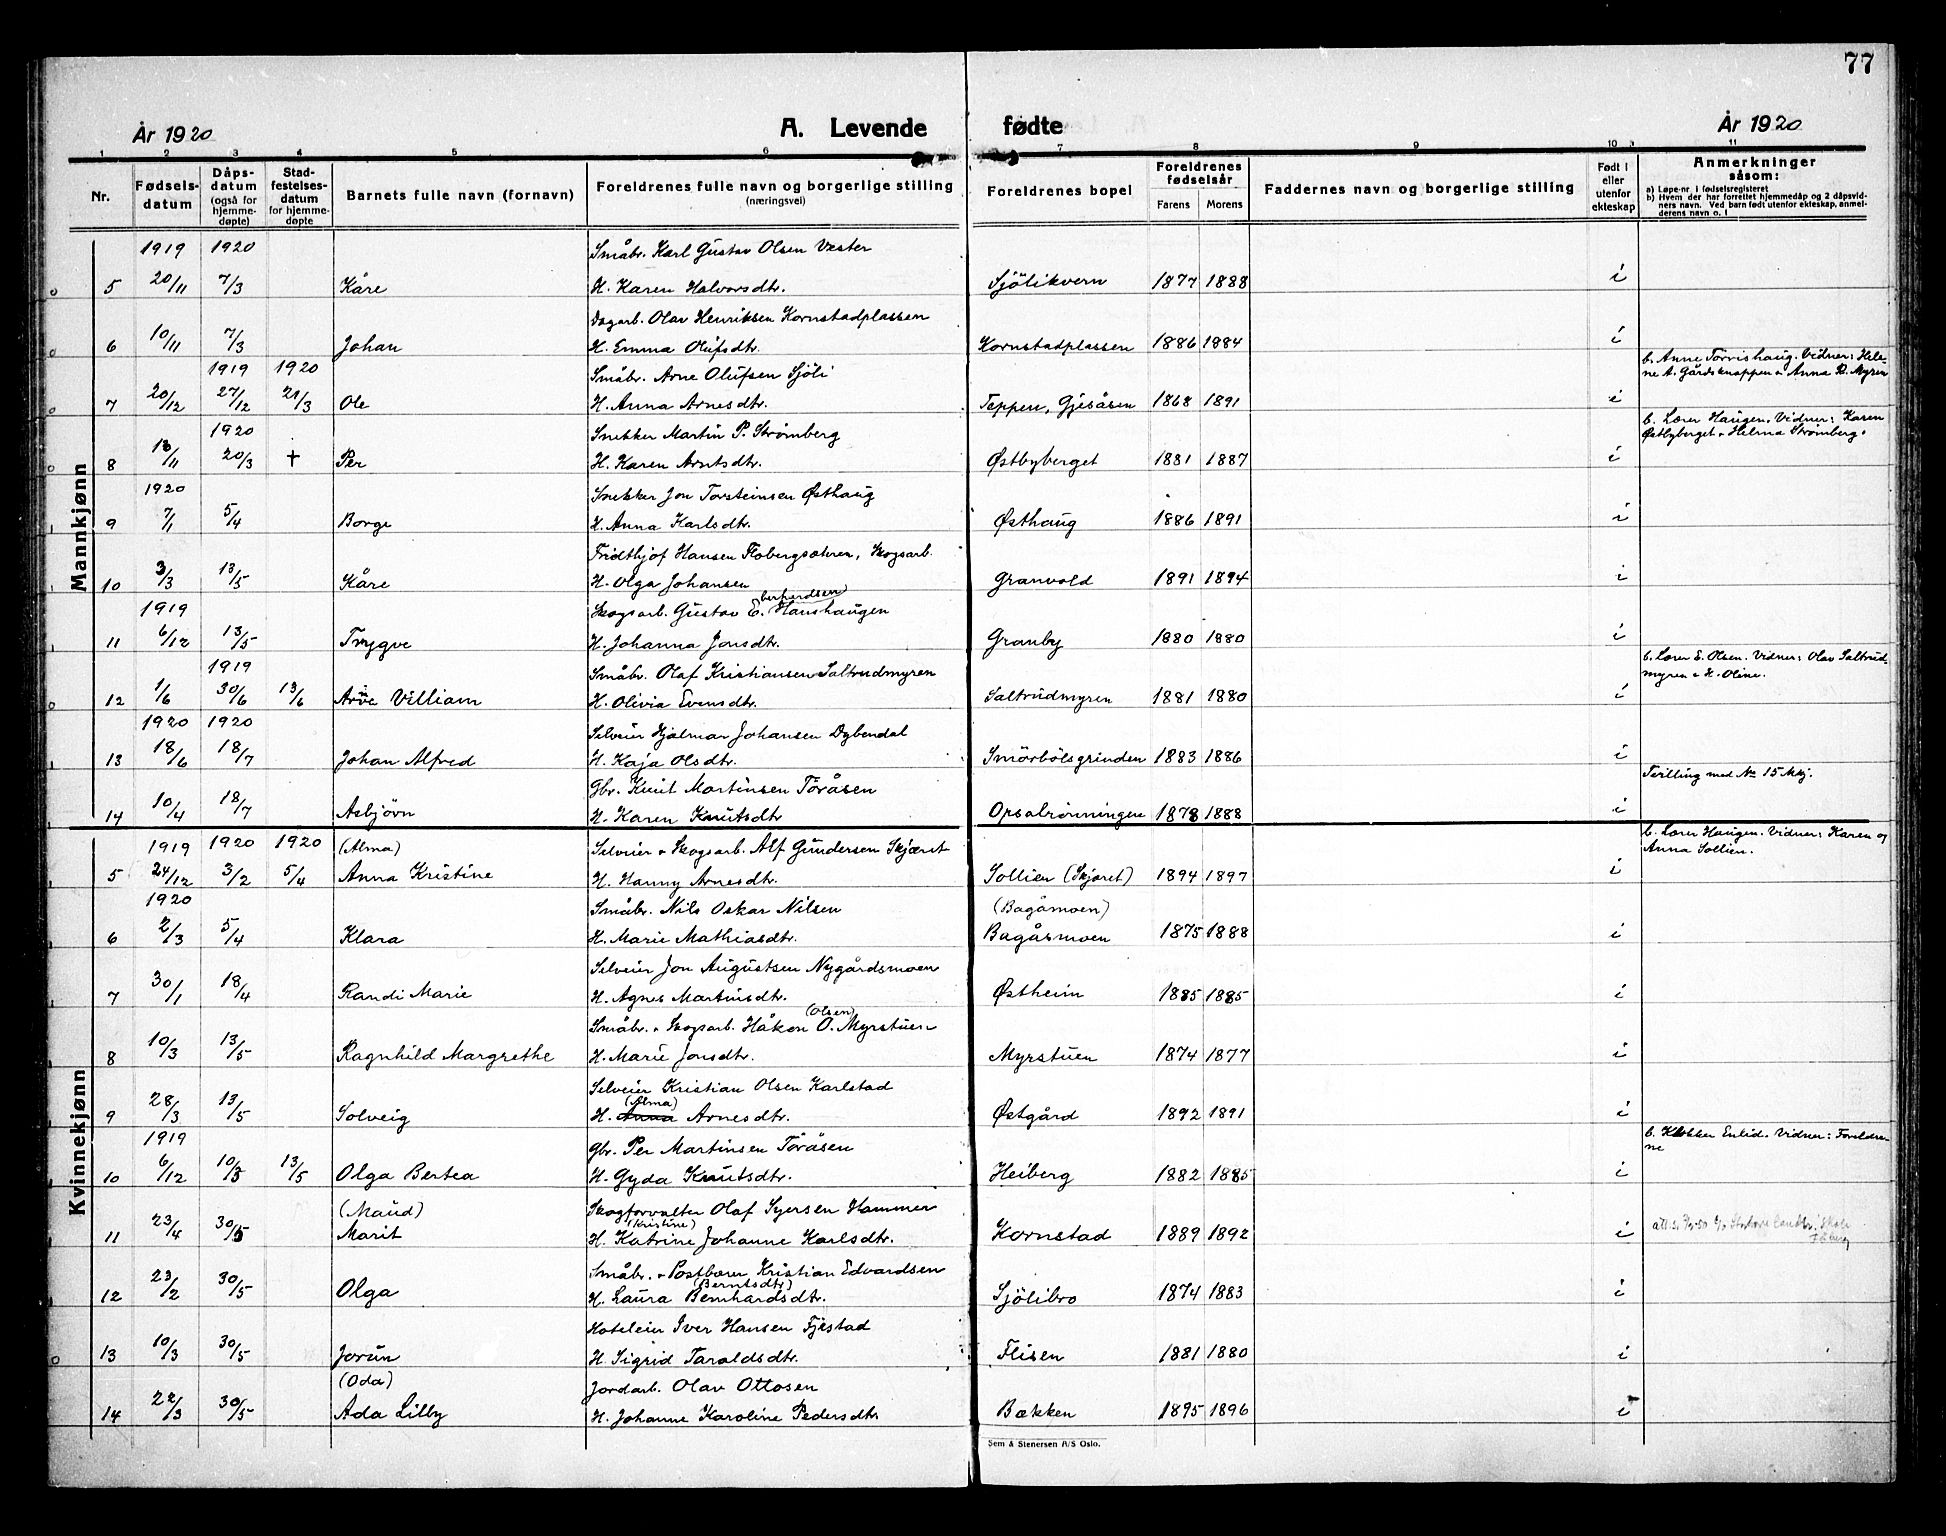 77
År 1920 A. Levende fødte År 1920
1 2 3 4 5 6 7 8 9 10 11
Nr. Fødsels-datum Dåps-datum (også for hjemme-døpte) Stad-festelses-datum for hjemme-døpte Barnets fulle navn (fornavn) Foreldrenes fulle navn og borgerlige stilling (næringsvei) Foreldrenes bopel Foreldrenes fødselsår Farens Morens Faddernes navn og borgerlige stilling Født i eller utenfor ekteskap Anmerkninger såsom:
a) Løpe-nr. i fødselsregisteret
b) Hvem der har forrettet hjemmedåp og 2 dåpsvid-
ners navn. Ved barn født utenfor ekteskap, anmel-
derens navn o. l
Mannkjønn
1919 1920 Småbr. Karl Gustav Olsen Vester
5 20/11 7/3 Kåre H. Karen Halvorsdtr. Sjölikvern 1877 1888 i
Dagarb. Olav Henriksen Kornstadplassen
6 10/11 7/3 Johan H. Emma Olufsdtr. Kornstadplassen 1886 1884 i
1919 1920 Småbr. Arne Olufsen Sjöli b. Anne Törrishaug. Vidner: Hele-
ne A. Gårdsknappen & Anna R. Myren
7 20/12 27/12 21/3 Ole H. Anna Arnesdtr. Teppen, Gjesåsen 1868 1891 i
1920 Snekker Martin P. Strömberg b. Lærer Haugen. Vidner: Karen
Østbyberget & Helma Strömberg.
8 18/11 20/3 † Per H. Karen Arntsdtr. Østbyberget 1881 1887 i
1920 Snekker Jon Torsteinsen Østhaug
9 7/1 5/4 Borge H. Anna Karlsdtr. Østhaug 1886 1891 i
Fridthjof Hansen Flobergsætren, Skogsarb.
10 3/3 13/5 Kåre H. Olga Johansen Granvold 1891 1894 i
berhardsen
1919 Skogsarb. Gustav E. Hanshaugen
11 6/12 13/5 Trygve H. Johanna Jonsdtr. Granby 1880 1880 i
1919 Småbr. Olaf Kristiansen Saltrudmyren b. Lærer E. Olsen. Vidner: Olav Saltrud-
myren & H. Oline.
12 1/6 30/6 13/6 Arve Villiam H. Olivia Evensdtr. Saltrudmyren 1881 1880 i
1920 1920 Selveier Hjalmar Johansen Dybendal
13 18/6 18/7 Johan Alfred H. Kaja Olsdtr. Smörbölsgrinden 1883 1886 i
Gbr. Knut Martinsen Töråsen Tvilling med No 15 Mkj.
14 10/4 18/7 Asbjörn H. Karen Knutsdtr Opsalrönningen 1878 1888 i
Kvinnekjønn
1919 1920 1920 (Alma) Selveier & Skogsarb. Alf Gundersen Skjæret b. Lærer Haugen. Vidner: Karen og
Anna Sollien.
5 24/12 3/2 5/4 Anna Kristine H. Hanny Arnesdtr. Sollien (Skjæret) 1894 1897 i
1920 Småbr. Nils Oskar Nilsen (Bagåmoen)
6 2/3 5/4 Klara H. Marie Mathiasdtr. Bagåsmoen 1875 1888 i
Selveier Jon Augustsen Nygårdsmoen
7 30/1 18/4 Randi Marie H. Agnes Martinsdtr. Østheim 1885 1885 i
(Olsen)
Småbr. & Skogsarb. Håkon O. Myrstuen
8 10/3 13/5 Ragnhild Margrethe H. Marie Jonsdtr. Myrstuen 1874 1877 i
Selveier Kristian Olsen Karlstad
(Alma)
9 28/3 13/5 Solveig H. Anna Arnesdtr. Østgård 1892 1891 i
1919 Gbr. Per Martinsen Töråsen b. Klokker Enlid. Vidner: Foreldre-
ne
10 6/12 10/3 13/5 Olga Bertea H. Gyda Knutsdtr. Heiberg 1882 1885 i
(Maud) Skogforvalter Olaf Syersen Hammer
(Kristine)
11 23/4 30/5 Marit H. Katrine Johanne Karlsdtr. Kornstad 1889 1892 i
Småbr. & Postbærer Kristian Edvardsen
(Berntsdtr)
12 23/2 30/5 Olga H. Laura Bernhardsdtr. Sjölibro 1874 1883 i
Hoteleier Iver Hansen Fjestad
13 10/3 30/5 Jorun H. Sigrid Taraldsdtr. Flisen 1881 1880 i
(Oda) Jordarb. Olav Ottosen
14 22/3 30/5 Ada Lilly H. Johanne Karoline Pedersdtr Bækken 1895 1896 i
Sem & Stenersen A/S Oslo.